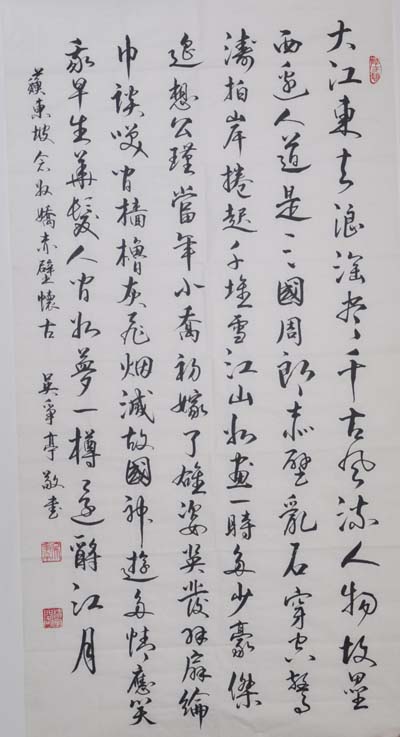 大江東去浪淘盡千古風流人物故壘
西邊人道是三國周郎赤壁亂石穿空驚
濤拍岸捲起千堆雪江山如畫一時多少豪傑
遙想公瑾當年小喬初嫁了雄姿英發羽扇綸
巾談咲間檣櫓灰飛烟滅故國神遊多情應笑
我早生華髮人間如夢一樽還酹江月
蘇東坡念奴嬌赤壁懷古 吳爭亭敬書